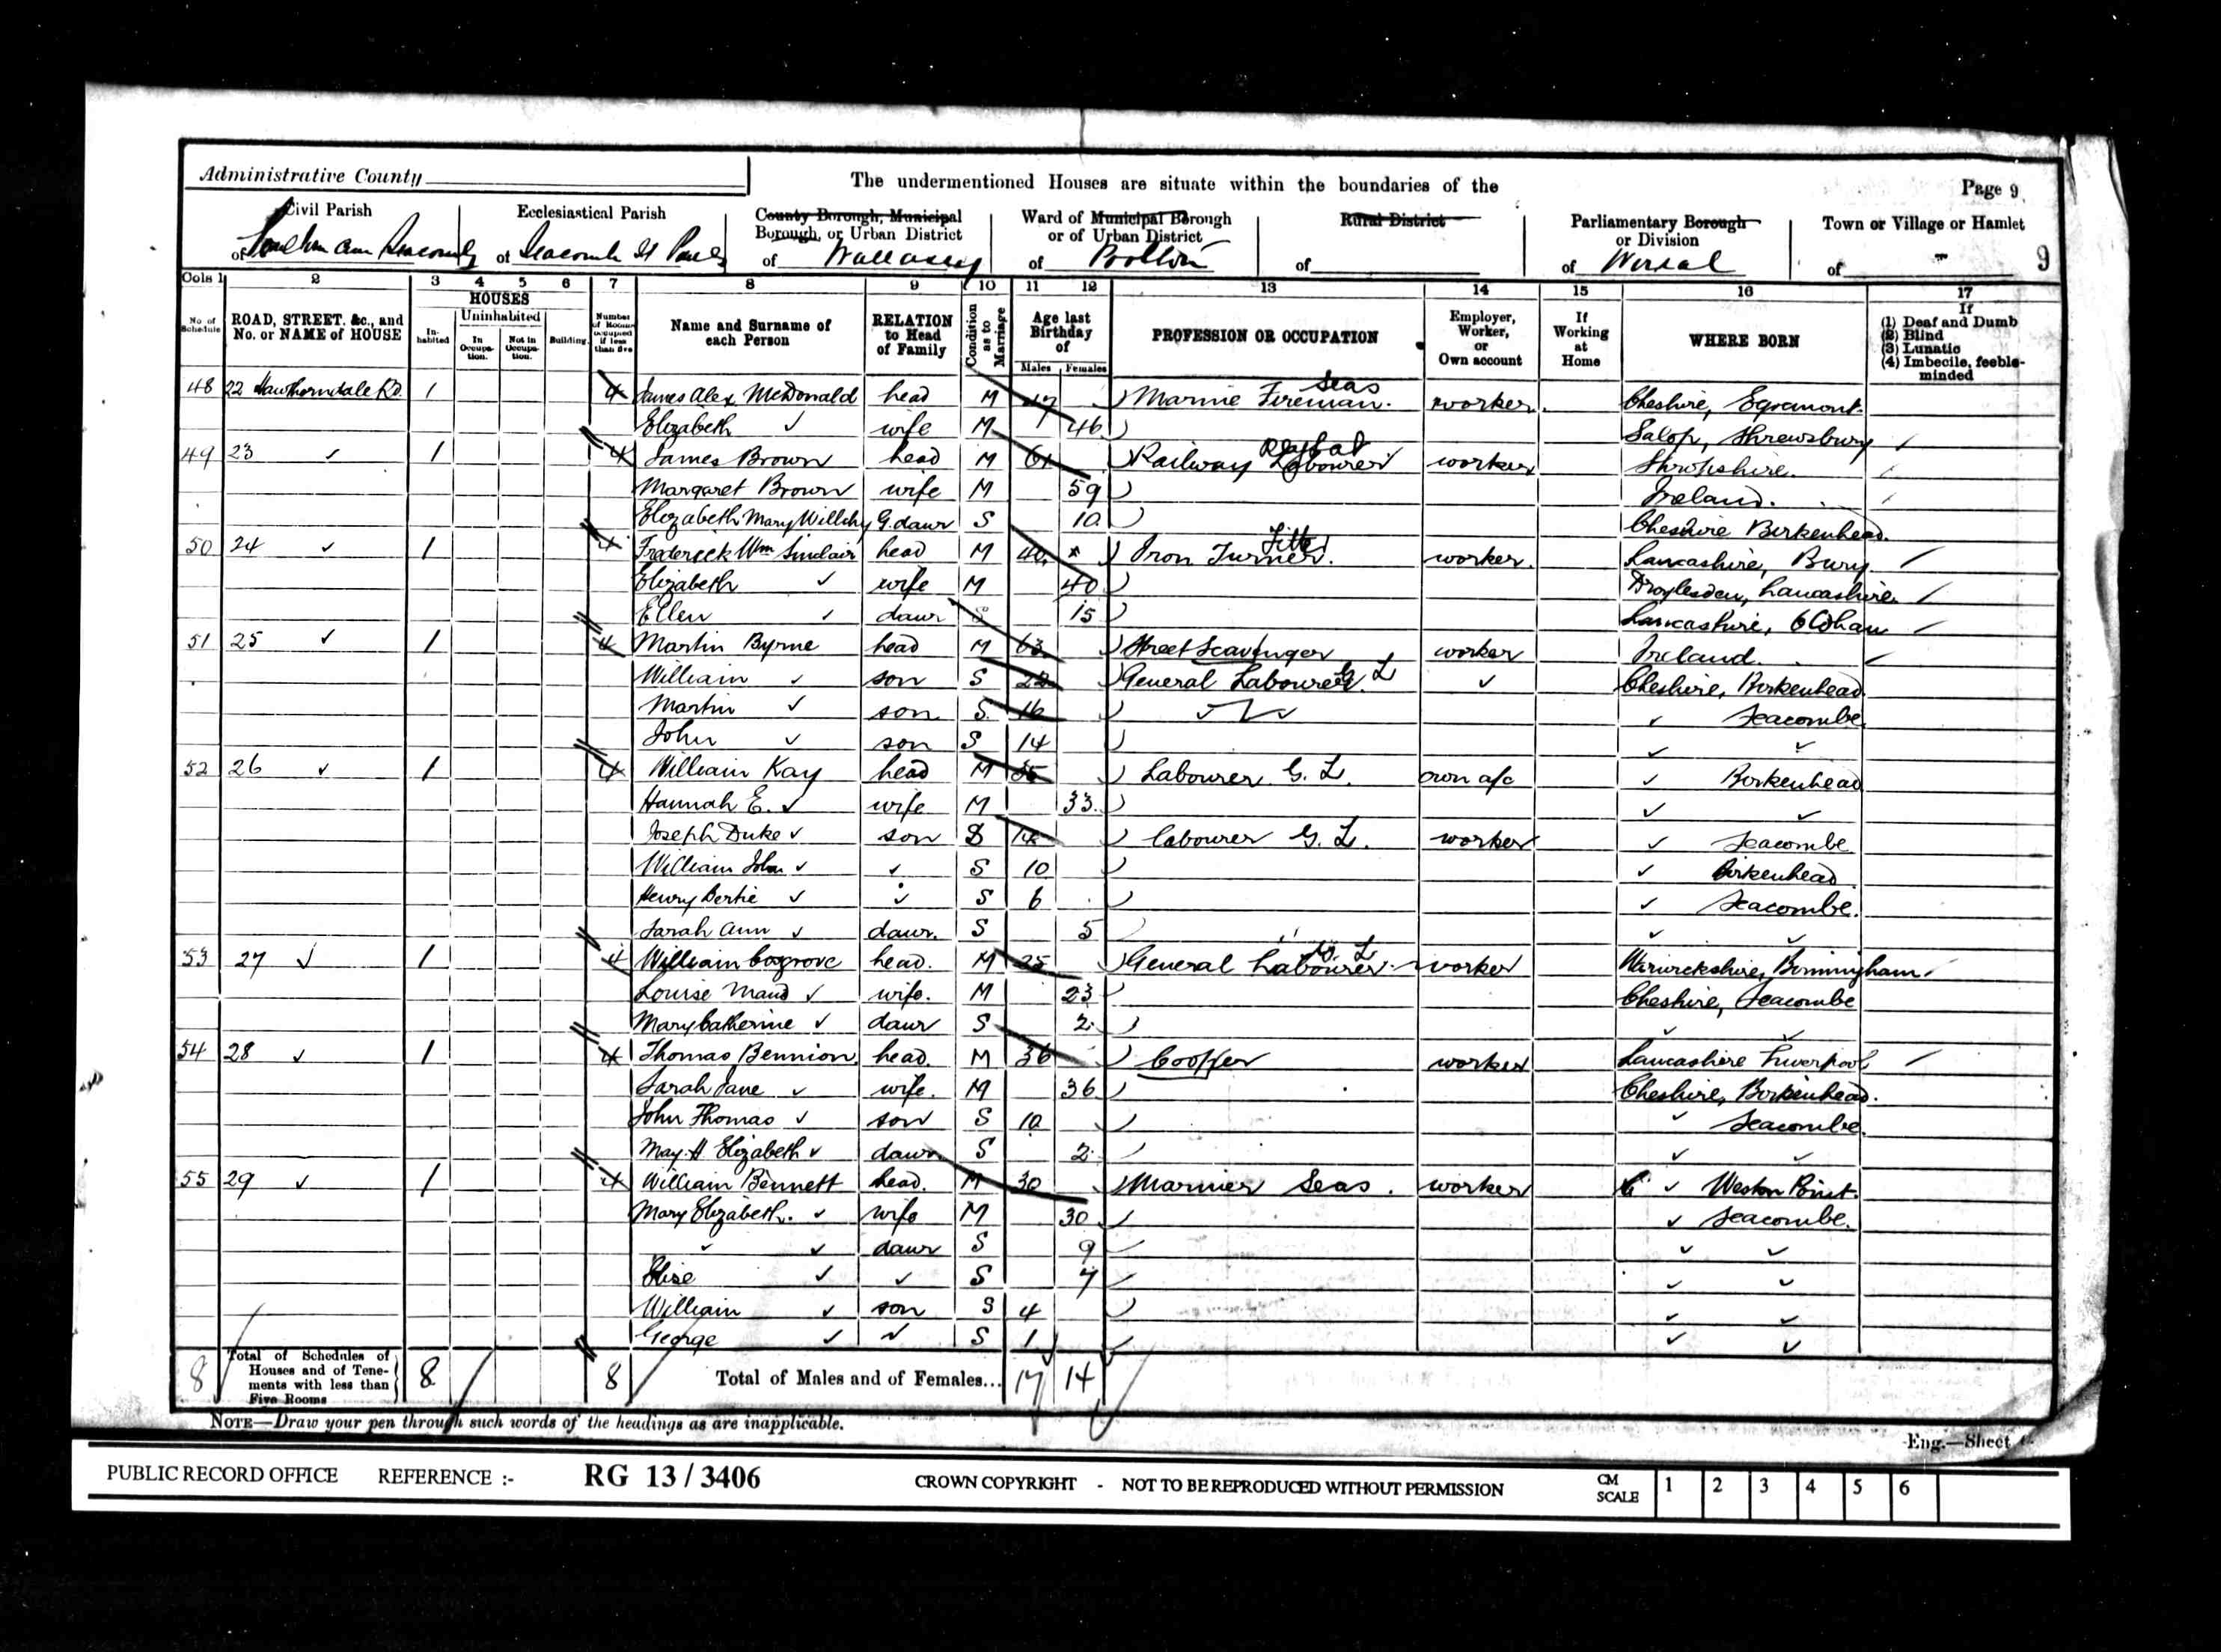 Administrative County
The undermentioned Houses are situate within the boundaries of the
Page 9
Civil Parish
Ecclesiastical Parish
County Borough, Municipal Borough, or Urban District
Ward of Municipal Borough or of Urban District
Rural District
Parliamentary Borough or Division
Town or Village or Hamlet
of Poulton cum Seacombe
of Seacombe St Pauls
of Wallasey
of
of
of Wirral
of -
9
Cols 1 2 3 4 5 6 7 8 9 10 11 12 13 14 15 16 17
No of Schedule
ROAD, STREET, &c., and No. or NAME of HOUSE
HOUSES
Inhabited
Uninhabited
In Occupation.
Not in Occupation.
Building.
Number of Rooms occupied if less than five
Name and Surname of each Person
RELATION to Head of Family
Condition as to Marriage
Age last Birthday of
Males Females
PROFESSION OR OCCUPATION
Employer, Worker, or Own account
If Working at Home
WHERE BORN
If
(1) Deaf and Dumb
(2) Blind
(3) Lunatic
(4) Imbecile, feeble-minded
48 22 Hawthorndale Rd. 1 4 James Alex McDonald head M 47 Marine Fireman. Seas worker. Cheshire, Egremont.
Elizabeth ✓ wife M 46 Salop, Shrewsbury
49 23 ✓ 1 4 James Brown head M 61 Railway Labourer worker Shropshire.
Margaret Brown wife M 59 Ireland.
Elizabeth Mary G. dawr S 10 Cheshire Birkenhead.
50 24 ✓ 1 4 Frederick Wm Sinclair head M 40 Iron Turner. Fitter worker. Lancashire, Bury.
Elizabeth ✓ wife M 40 Droylesden, Lancashire
Ellen ✓ dawr S 15 Lancashire, Oldham
51 25 ✓ 1 4 Martin Byrne head M 63 Street Scavenger worker Ireland.
William ✓ son S 22 General Labourer. G. L ✓ Cheshire, Birkenhead
Martin ✓ son S. 16 ✓ ✓ ✓ Seacombe.
John ✓ son S 14 ✓ ✓
52 26 ✓ 1 4 William Kay head M 35 Labourer G. L. own a/c ✓ Birkenhead
Hannah E. ✓ wife M 33 ✓ ✓
Joseph Duke ✓ son S 14 labourer G. L. worker ✓ Seacombe
William John ✓ ✓ S 10 ✓ Birkenhead
Henry Bertie ✓ ✓ S 6 ✓ Seacombe.
Sarah Ann ✓ dawr. S 5 ✓ ✓
53 27 ✓ 1 4 William Cogrove head. M 25 General Labourer. G. L worker Warwickshire, Birmingham
Louise Maud ✓ wife. M 23 Cheshire, Seacombe
Mary Catherine ✓ dawr S 2 ✓ ✓
54 28 ✓ 1 4 Thomas Bennion head. M 36 Cooper worker Lancashire Liverpool
Sarah Jane ✓ wife. M 36 Cheshire, Birkenhead.
John Thomas ✓ son S 10 ✓ Seacombe.
May H Elizabeth ✓ dawr S 2 ✓ ✓
55 29 ✓ 1 4 William Bennett head. M 30 Mariner Seas. worker ✓ Weston Point.
Mary Elizabeth. ✓ wife M 30 ✓ Seacombe.
✓ ✓ dawr S 9 ✓ ✓
Elise ✓ ✓ S 7 ✓ ✓
William ✓ son S 4 ✓ ✓
George ✓ ✓ S 1 ✓ ✓
8 Total of Schedules of Houses and of Tenements with less than Five Rooms 8 8 Total of Males and of Females... 17 14
NOTE—Draw your pen through such words of the headings as are inapplicable.
Eng.—Sheet
PUBLIC RECORD OFFICE REFERENCE :- RG 13 / 3406 CROWN COPYRIGHT - NOT TO BE REPRODUCED WITHOUT PERMISSION CM SCALE 1 2 3 4 5 6